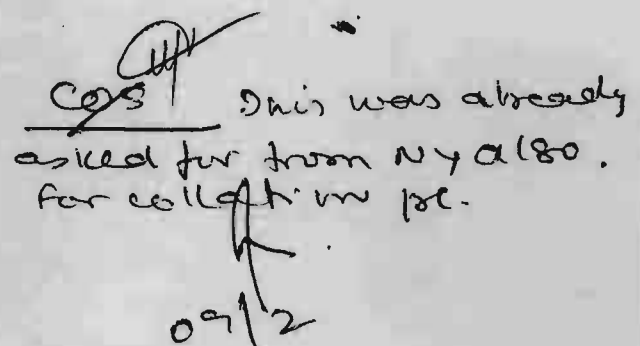 COS This was already
asked for from NY also.
For collation pl.
09/2